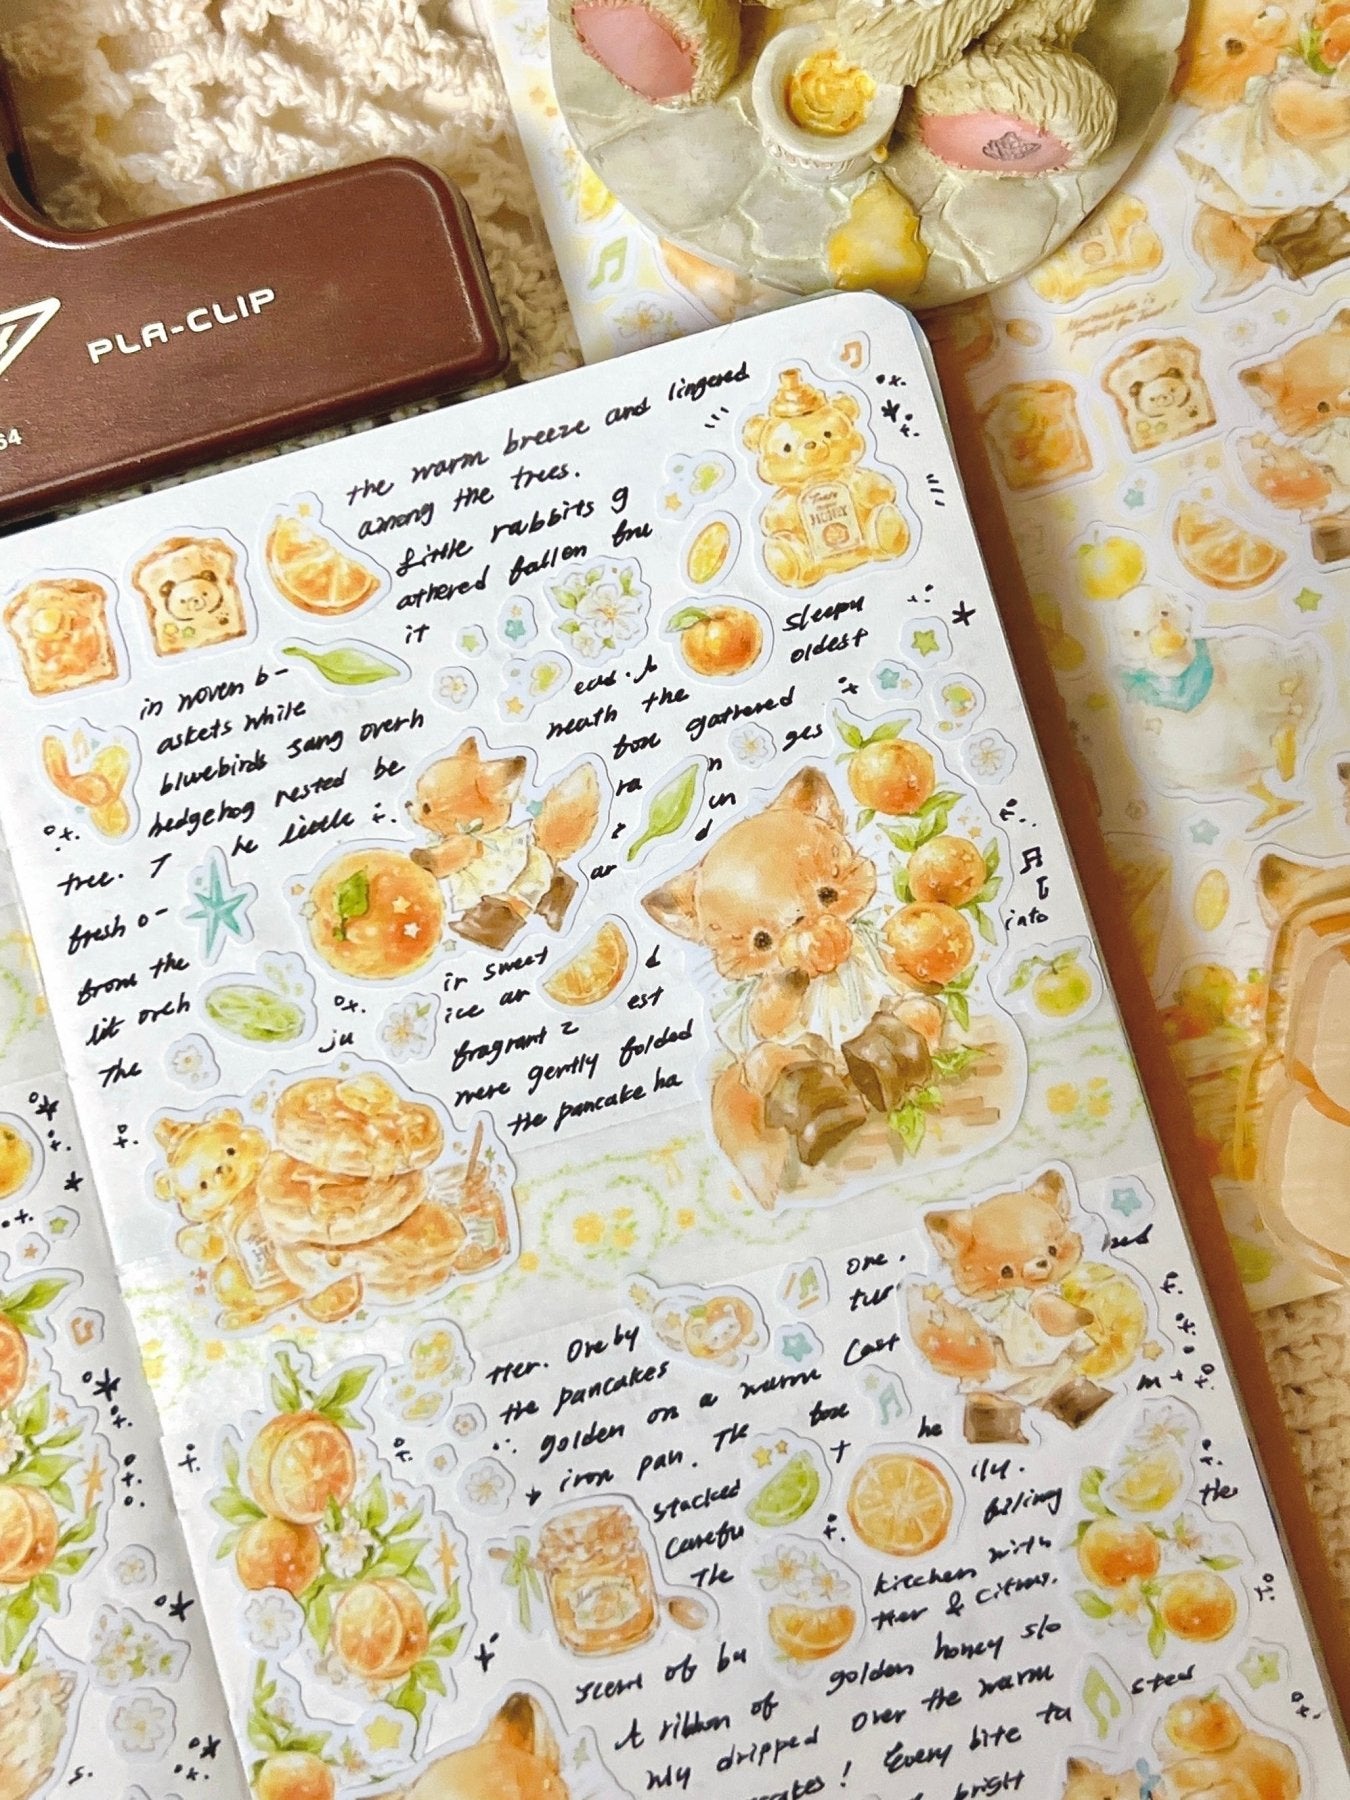 PLA-CLIP
64
the warm breeze and lingered
among the trees.
Little rabbits g
athered fallen fru
it
in woven b-
askets while
bluebirds sang overh
ead. A
sleepy
hedgehog rested be
neath the
oldest
tree. T
he little
fox gathered
fresh o-
ra
n
ges
from the
un
lit orch
ar
d
The
ju
ice an
d
fragrant z
est
were gently folded
into
the pancake ba
in sweet
tter. One by
one.
the pancakes
tur
ned
golden on a warm
cast
iron pan. The
fox
he
stacked
carefu
lly.
The
filling
the
kitchen with
tter & citrus.
scent of bu
A ribbon of
golden honey slo
wly dripped over the warm
Every bite ta
sted
bright
HONEY
s.